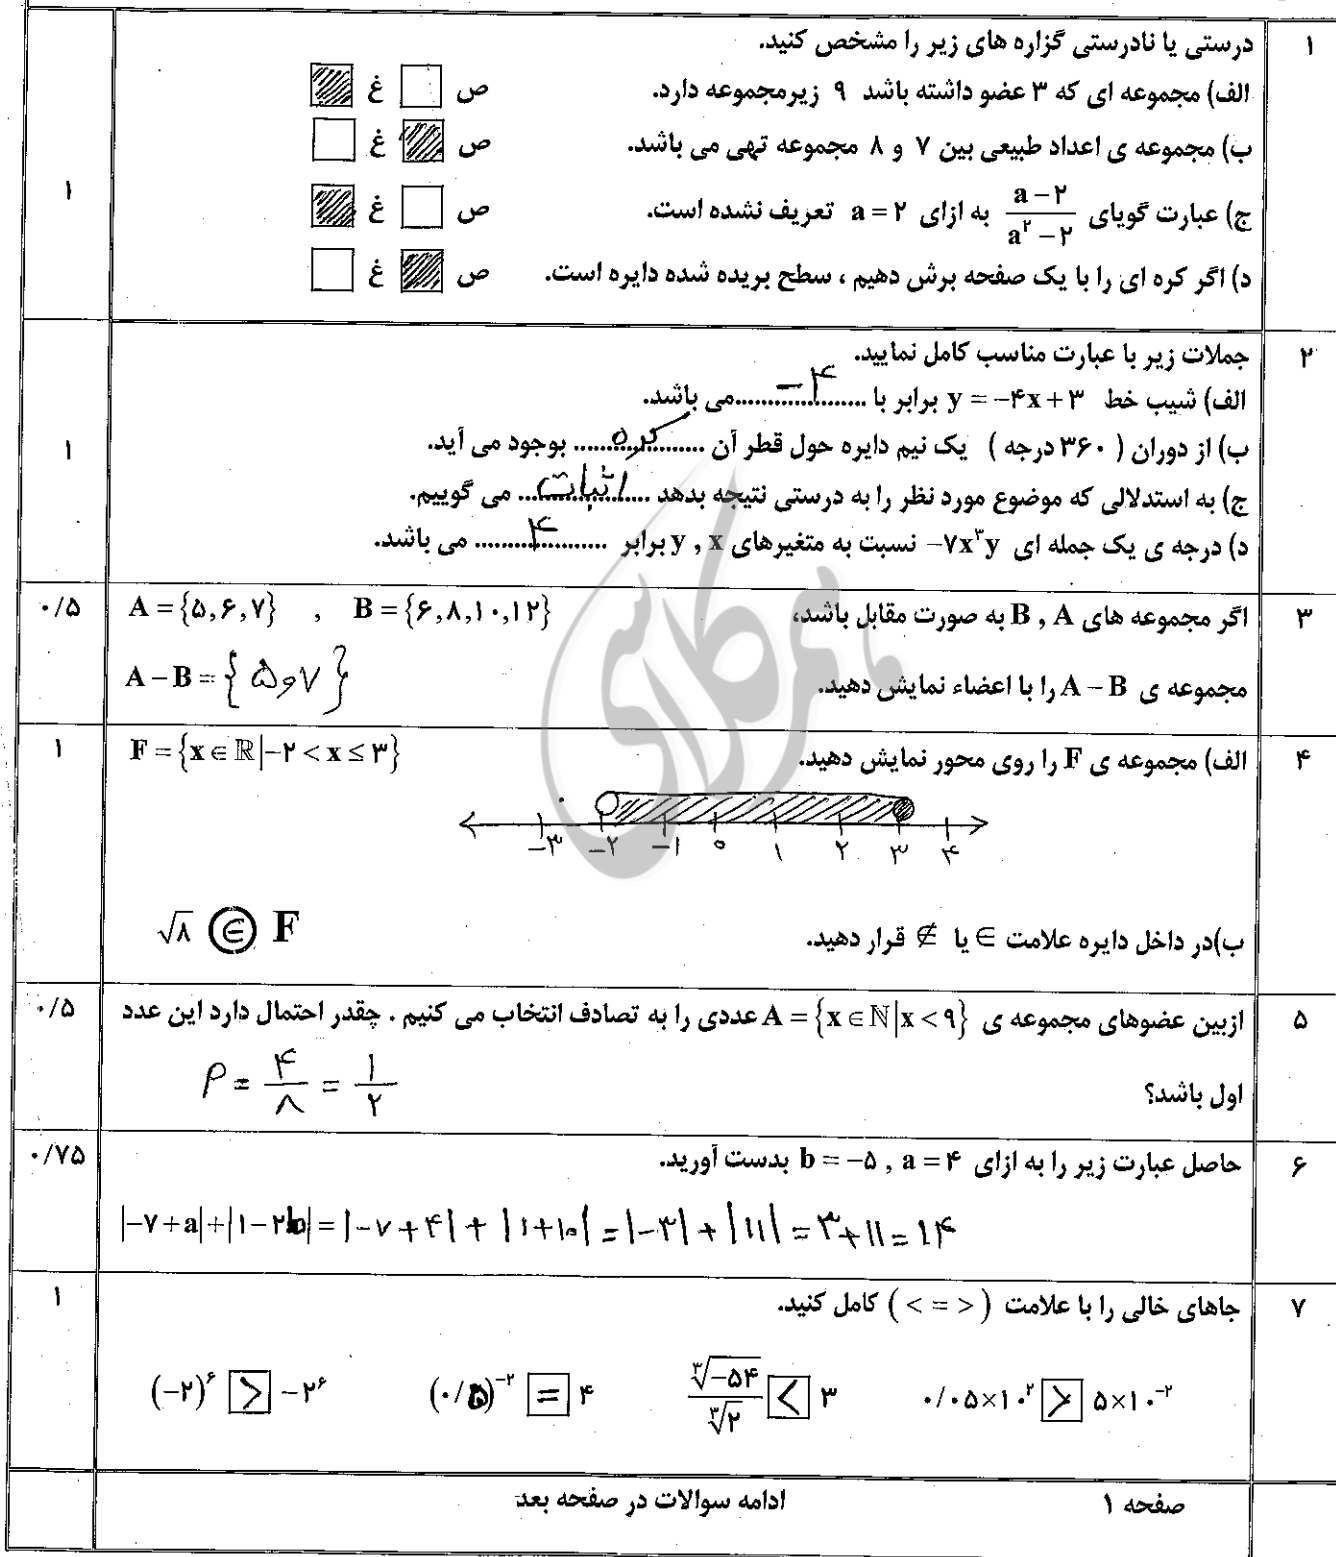 ۱ درستی یا نادرستی گزاره های زیر را مشخص کنید. ۱
الف) مجموعه ای که ۳ عضو داشته باشد ۹ زیرمجموعه دارد. ص غ
ب) مجموعه ی اعداد طبیعی بین ۷ و ۸ مجموعه تهی می باشد. ص غ
ج) عبارت گویای (a-۲)/(a^۲-۲) به ازای a=۲ تعریف نشده است. ص غ
د) اگر کره ای را با یک صفحه برش دهیم ، سطح بریده شده دایره است. ص غ
۲ جملات زیر با عبارت مناسب کامل نمایید. ۱
الف) شیب خط y = -۴x+۳ برابر با ....-۴....می باشد.
ب) از دوران ( ۳۶۰ درجه ) یک نیم دایره حول قطر آن ....کره.... بوجود می آید.
ج) به استدلالی که موضوع مورد نظر را به درستی نتیجه بدهد ....اثبات.... می گوییم.
د) درجه ی یک جمله ای -۷x^۳y نسبت به متغیرهای y , x برابر ....۴.... می باشد.
۳ اگر مجموعه های B , A به صورت مقابل باشد، A={۵,۶,۷} , B={۶,۸,۱۰,۱۲} ۰/۵
مجموعه ی A-B را با اعضاء نمایش دهید. A-B={۵و۷}
۴ الف) مجموعه ی F را روی محور نمایش دهید. F={x∈ℝ|-۲<x≤۳} ۱
-۳ -۲ -۱ ۰ ۱ ۲ ۳ ۴
ب)در داخل دایره علامت ∈ یا ∉ قرار دهید. √۸ ∈ F
۵ ازبین عضوهای مجموعه ی A={x∈ℕ|x<۹} عددی را به تصادف انتخاب می کنیم . چقدر احتمال دارد این عدد ۰/۵
اول باشد؟ P = ۴/۸ = ۱/۲
۶ حاصل عبارت زیر را به ازای b=-۵ , a=۴ بدست آورید. ۰/۷۵
|-۷+a|+|۱-۲b|=|-۷+۴|+|۱+۱۰|=|-۳|+|۱۱|=۳+۱۱=۱۴
۷ جاهای خالی را با علامت ( < = > ) کامل کنید. ۱
(-۲)^۶ > -۲^۶ (۰/۵)^-۲ = ۴ ∛-۵۴/∛۲ < ۳ ۰/۰۵×۱۰^۲ > ۵×۱۰^-۲
صفحه ۱ ادامه سوالات در صفحه بعد